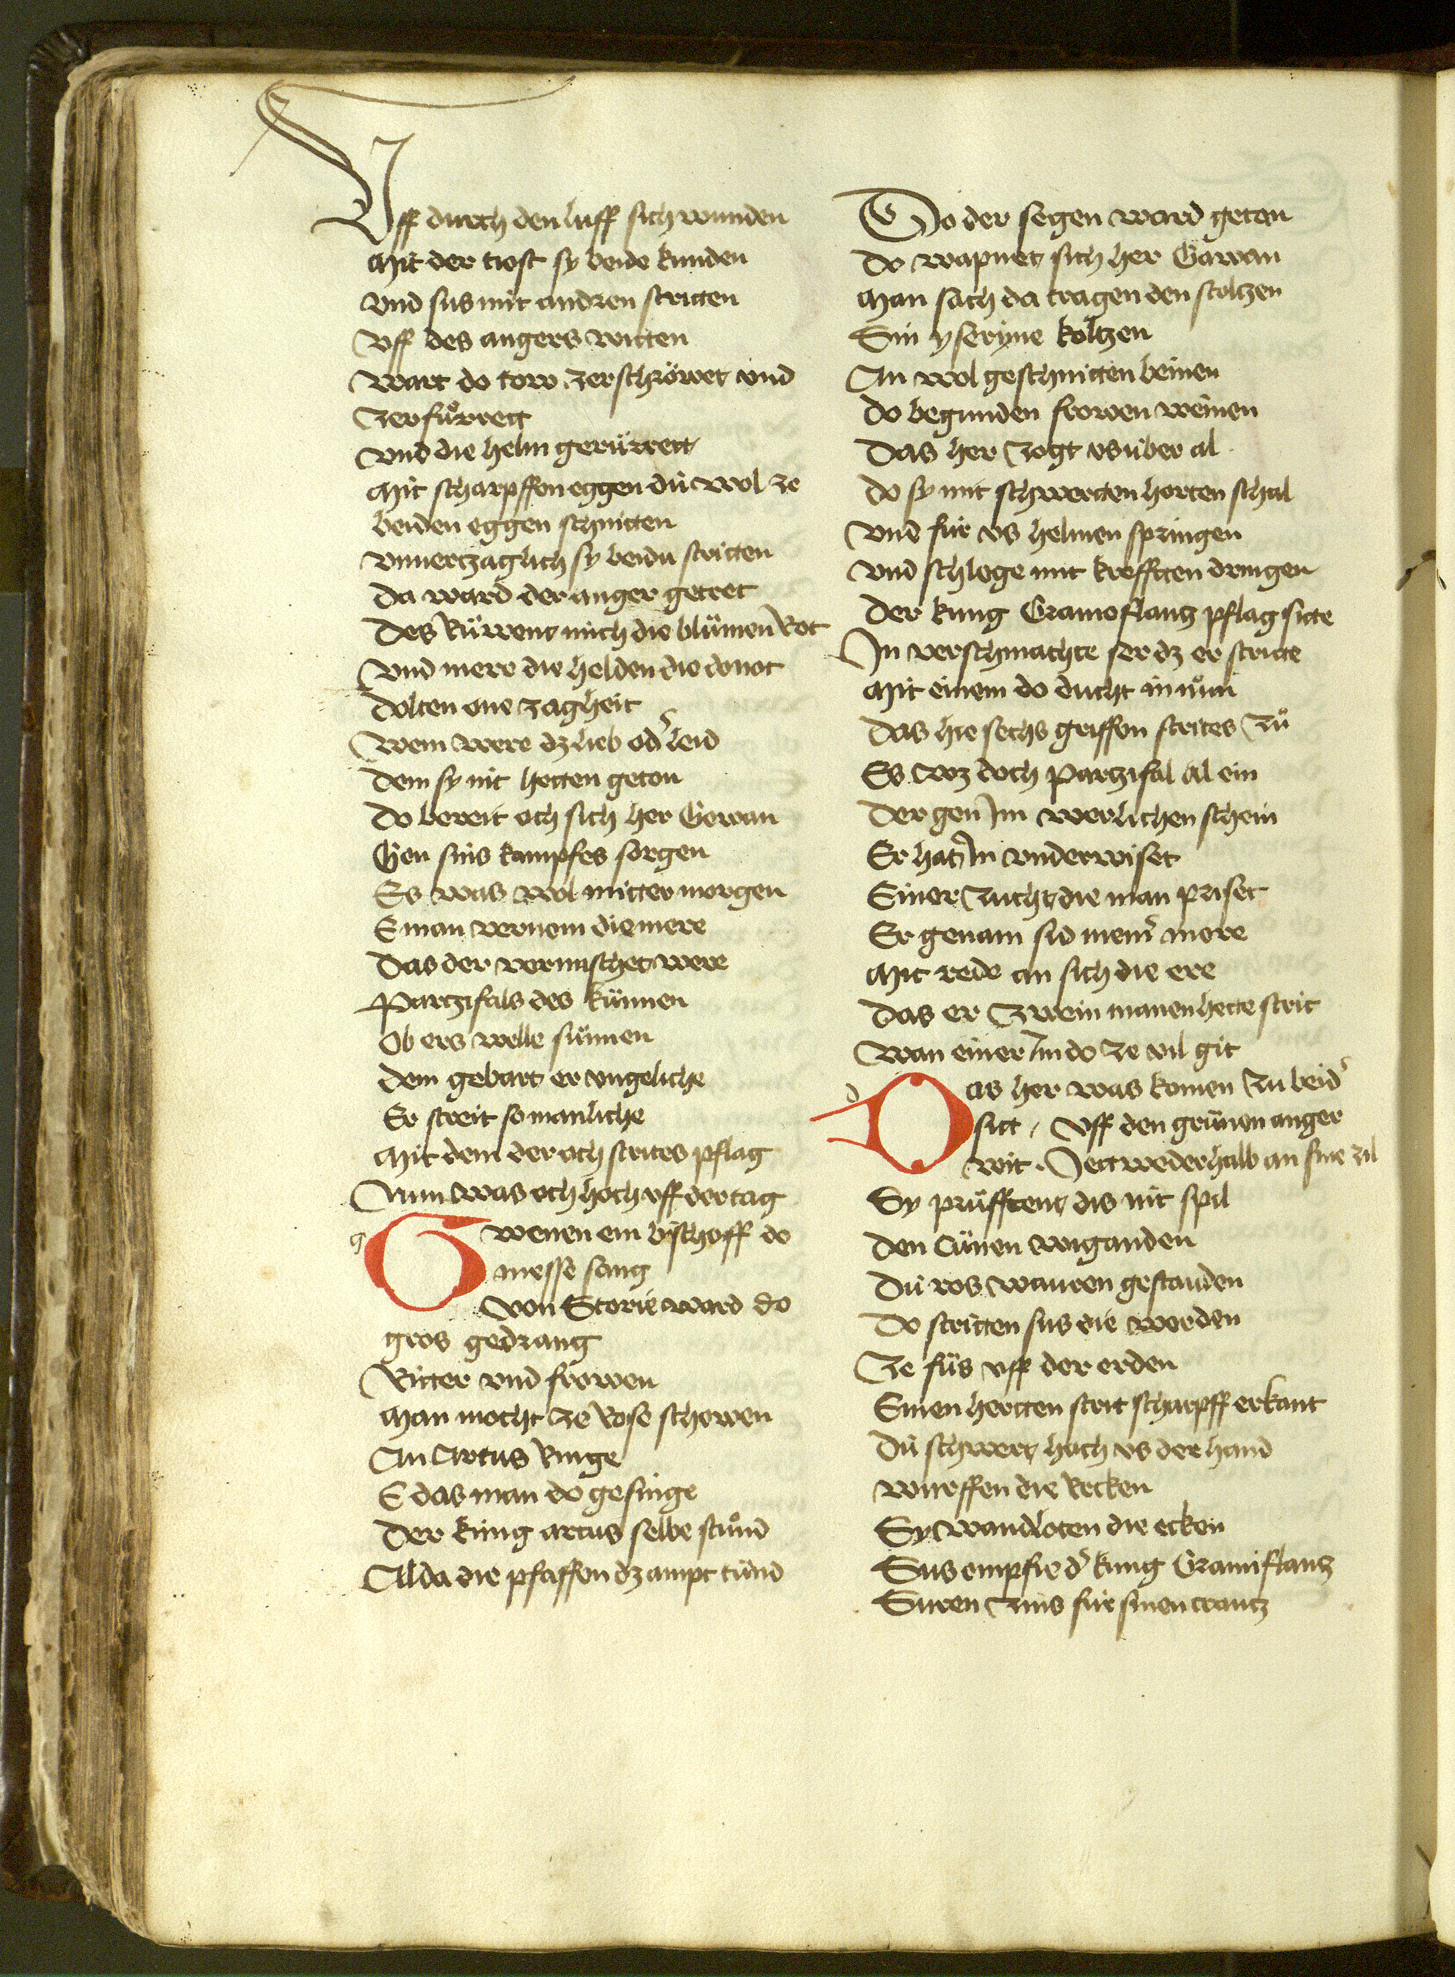 Vff durch den luff sich wunden
Mit der tiost sy beide kunden
Vnd sus mit andren stritten
Vff des angers witten
Wart do tow zerschröwet vnd
Zerfuͦrrett
Vnd die helm gerürrett
Mit scharpffen eggen dü wol ze
beiden eggen schnitten
Vnuerzaglich sy beidu stritten
Da ward der anger getret
Des Rüwent mich die blümen Rot
Vnd mere die helden die do not
Dolten one zagheit
Wem were dz lieb od' leid
Dem sy nit hetten geton
Do bereit och sich her Gowan
Gen sins kampfes sorgen
Es was wol mitter morgen
E man vernem die mere
Das der vermischet were
Partzifals des künnen
Ob ers welle sünnen
Dem gebart er vngeliche
Er streit so manliche
Mit dem der och strites pflag
Nun was och hoch vff der tag
g
Gwenen ein bischoff do
messe sang
Von Storie ward do
gros gedrang
Ritter vnd frowen
Man mocht ze Rose schowen
An Artus Ringe
E das man do gesinge
Der küng artus selbe stuͦnd
Alda die pfaffen dz ampt tünd
Do der segen ward geton
Do wapnet sich her Gawan
Man sach da tragen den stoltzen
Sin yseryne koltzen
An wol geschnitten beinen
Do begunden frowen weinen
Das her zogt vs über al
Do sy mit schwerten horten schal
Vnd für vs helmen springen
Vnd schlege mit krefften dringen
Der küng Gramoflantz pflag sitte
In verschmachte ser dz er stritte
Mit einem do ducht in nuͦn
Das hie sechs griffen strites zuͦ
Es wz doch partzifal al ein
Der gen im werlichen schein
Er hat in vnderwiset
Einer zucht die man priset
Er genam sid mem' mere
Mit rede an sich die ere
Das er zwein manen hette strit
Wan einer im do ze vil git
d
Das her was komen zu beid'
sitt / Vff den grünen anger
wit . Jettwederhalb an sine zil
Sy pruͦfftent dis nit spil
Den cünen wiganden
Dü ros wauren gestanden
Do stritten sus die werden
Ze füs vff der erden
Einen hertten strit scharpff erkant
Dü schwert hoch vs der hand
wurffen die Recken
Sy wandloten die ecken
Sus empfie d' küng Gramiflantz
Suren zins für sinen crantz